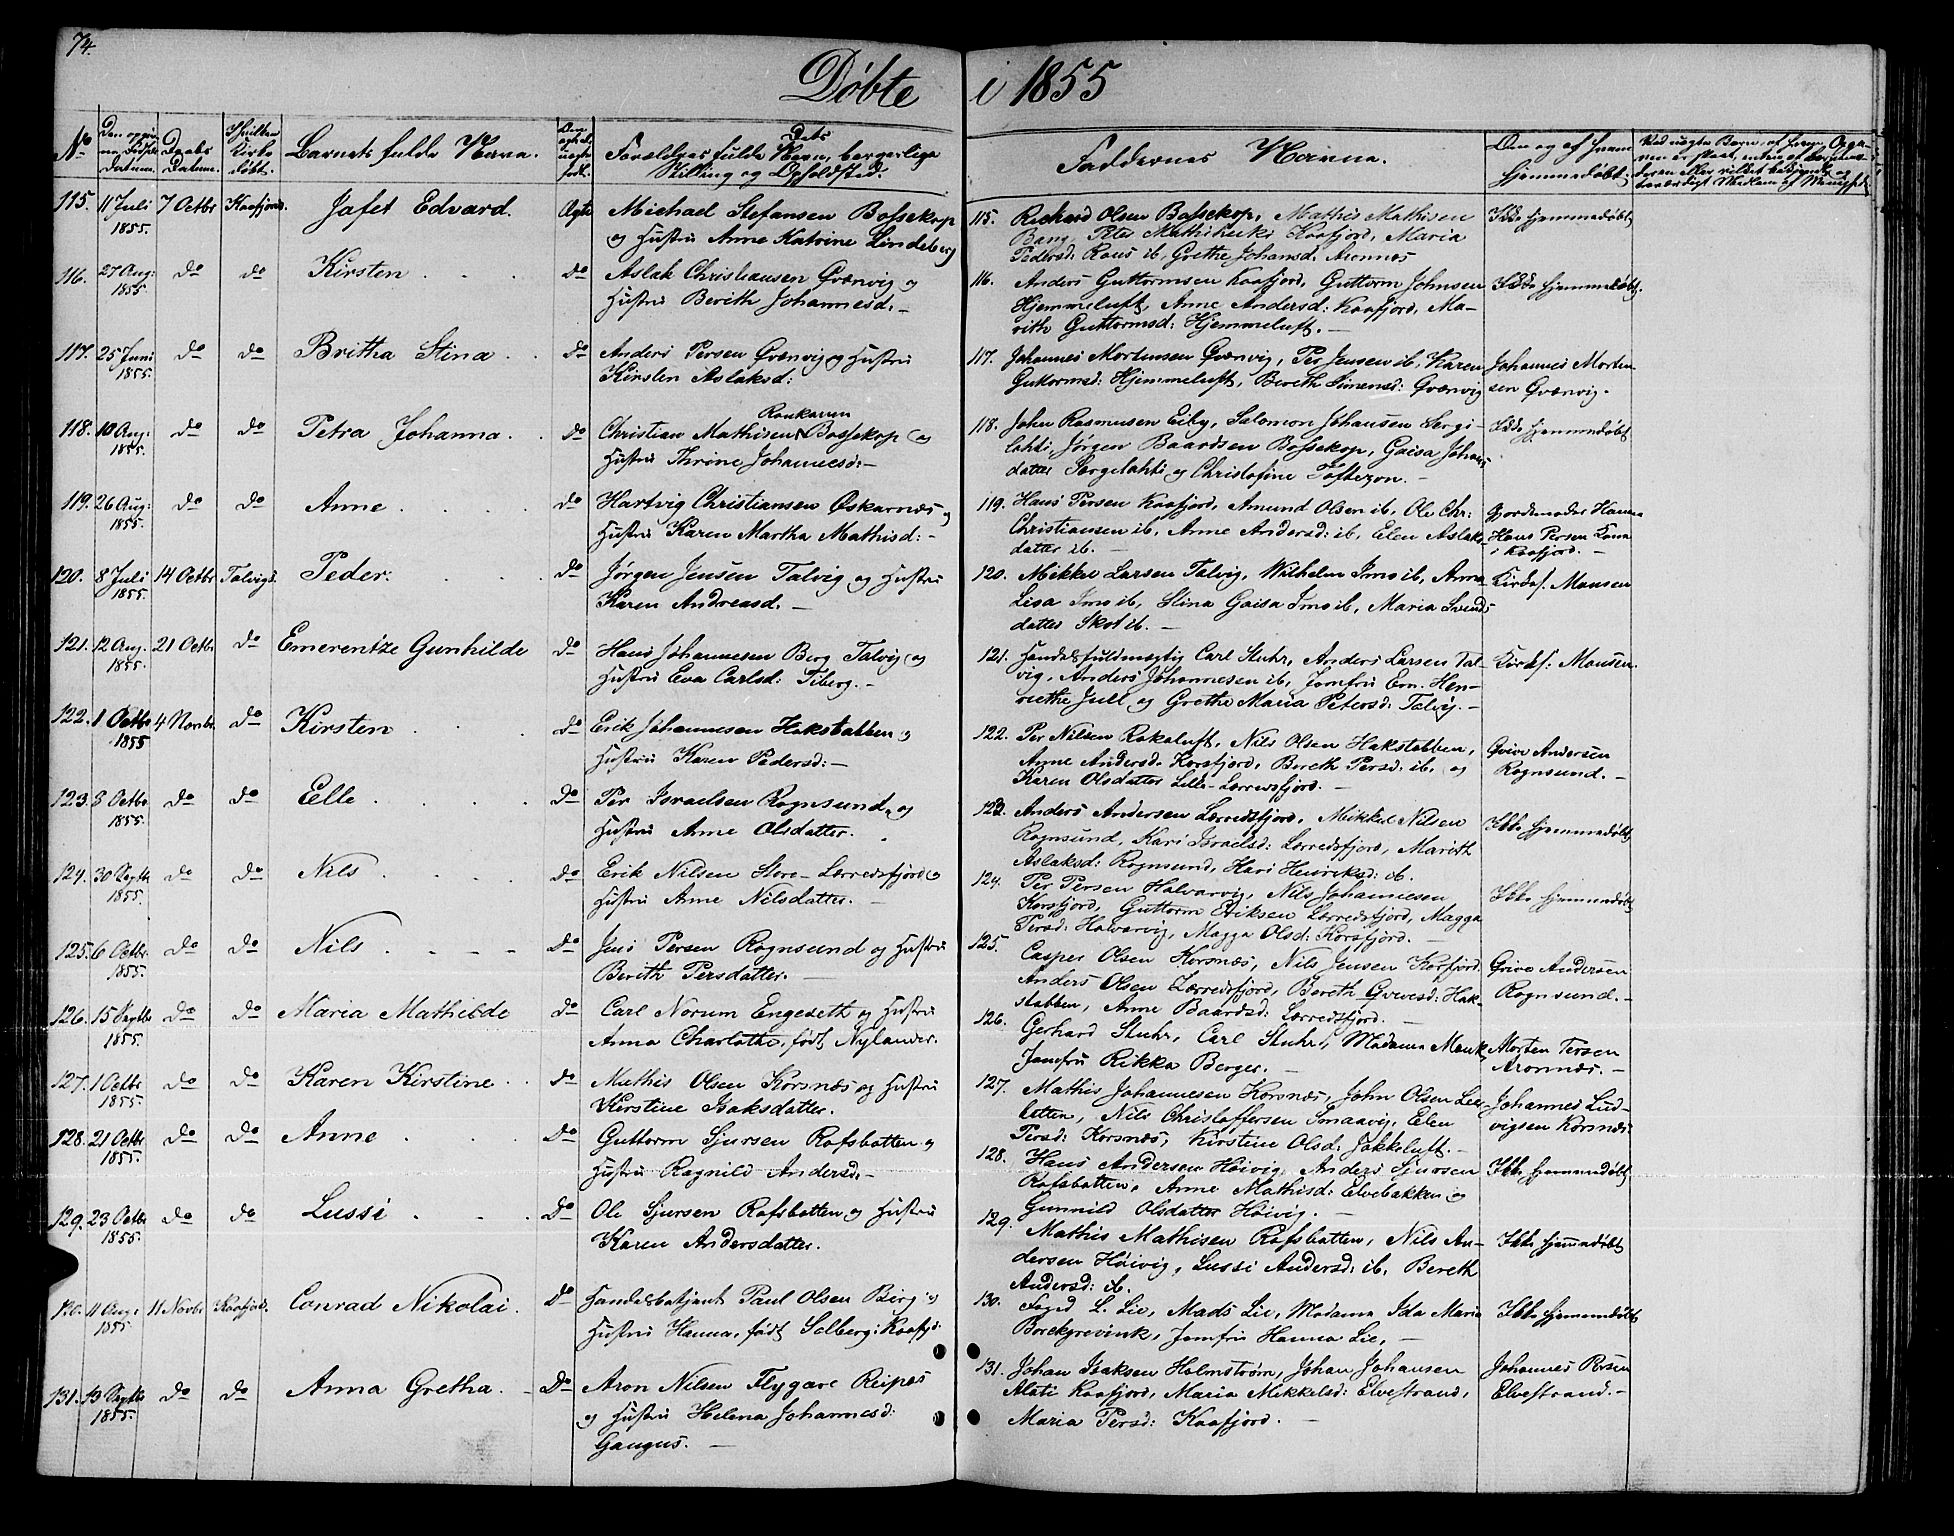 74.
Døbte i 1855
No
Den opgivne Fødsels Datum.
Daabs Datum.
I hvilken Kirke døbt.
Barnets fulde Navn.
Forældres fulde Navn, Dets borgerlige
Stilling og Opholdsted.
Faddernes Navne.
Om og af hvem
hjemmedøbt.
115. 11 Juli 1855. 7 Octbr Kaafjord. Jafet Edvard. Ægte Michael Stefansen Bossekop
og Hustru Anne Katrine Lindeberg
115. Richard Olsen Bossekop, Mathis Mathisen
Bang, Kaafjord, Maria
Pedersd: Raus ib, Grethe Johansd. Aronnæs
Ikke hjemmedøbt
116. 27 Aug: 1855. do do Kirsten do Aslak Christiansen Qvænvig og
Hustru Berith Johannesd. –
116. Anders Guttormsen Kaafjord, Guttorm Johnsen
Hjemmeluft, Anne Andersd: Kaafjord, Ma-
rith Guttormsd: Hjemmeluft. –
Ikke hjemmedøbt.
117. 25 Juni 1855. do do Britha Stina do Anders Persen Qvænvig og Hustru
Kirsten Aslaksd:
117. Johannes Mortensen Qvænvig, Per Jensen ib, Karen
Guttormsd: Hjemmeluft, Bereth Simensd: Qvænvig
Johannes Morten-
sen Qvænvig.
118. 10 Aug. 1855. do do Petra Johanna. do Christian Mathisen Raukaren Bossekop og
Hustru Thrine Johannesd: –
118. John Rasmusen Eiby, Salomon Johansen Sergi-
lahti, Jørgen Baardsen Bossekop, Gaisa Johans
datter Sergelahti og Christofine Tofteson. –
Ikke hjemmedøbt
119. 26 Aug: 1855. do do Anne do Hartvig Christiansen Oskarnæs og
Hustru Karen Martha Mathisd: –
119. Hans Persen Kaafjord, Amund Olsen ib, Ole Chr:
Christiansen ib, Anne Andersd: ib, Elen Aslaks
datter ib. –
Gjordemoder Hanna
Hans Persen Kona
i Kaafjord. –
120. 8 Juli 1855. 14 Octbr Talvigs. Peder. do Jørgen Jensen Talvig og Hustru
Karen Andreasd. –
120. Mikkel Larsen Talvig, Wilhelm Imo ib, Anna
Lisa Imo ib, Stina Gaisa Imo ib, Maria Svends
datter Skot ib. –
Kirkes. Monsen
121. 12 Aug. 1855. 21 Octbr do Emerentze Gunhilde do Hans Johannesen Berg Talvig og
Hustru Eva Carlsd: Tiberg. –
121. Handelsfuldmægtig Carl Stuhr, Anders Larsen Tal-
vig, Anders Johannesen ib, Jomfru Em. Hen-
riethe Jull og Grethe Maria Petersd: Talvig. –
Kirkes. Monsen.
122. 1 Octbr 1855 4 Novbr do Kirsten do Erik Johannesen Hakstabben og
Hustru Karen Pedersd: –
122. Per Nilsen Rakaluft, Nils Olsen Hakstabben,
Anne Andersd. Korsfjord, Bereth Persd: ib. og
Karen Olsdatter Lille-Lærredsfjord. –
Grive Andersen
Rognsund. –
123. 8 Octbr. 1855. do do Elle do Per Israelsen Rognsund og
Hustru Anne Olsdatter.
123. Anders Andersen Lærredsfjord, Mikkel Nilsen
Rognsund, Kari Israelsd: Lærredsfjord, Marith
Aslaksd: Rognsund, Hari Henriksd: ib.
Ikke hjemmedøbt
124. 30 Septbr 1855. do do Nils do Erik Nilsen Store-Lærredsfjord og
Hustru Anne Nilsdatter. –
124. Per Persen Halvarvig, Nils Johannesen
Korsfjord, Guttorm Eriksen Lærredsfjord, Magga
Persd: Halvarvig, Magga Olsd: Korsfjord. –
Ikke hjemmedøbt
125. 6 Octbr. 1855. do do Nils do Jens Persen Rognsund og Hustru
Berith Persdatter. –
125. Casper Olsen Korsnæs, Nils Jensen Korsfjord.
Anders Olsen Lærredsfjord, Bereth Grivesd: Hak-
stabben, Anne Baardsd: Lærredsfjord. –
Grive Andersen
Rognsund. –
126. 15 Septbr 1855. do do Maria Mathilde do Carl Norum Engeseth og Hustru
Anna Charlotha, født Nylander.
126. Gerhard Stuhr, Carl Stuhr, Madame Monk,
Jomfru Rikka Berger. –
Morten Tersen
Aronnæs. –
127. 1 Octbr 1855. do do Karen Kirstine do Mathis Olsen Korsnæs og Hustru
Kerstine Isaksdatter.
127. Mathis Johannesen Korsnæs, John Olsen Lers-
batten, Nils Christoffersen Smaavig, Elen
Persd: Korsnæs, Kirstine Olsd: Jokkeluft. –
Johannes Lud-
vigsen Korsnæs.
128. 21 Octbr 1855. do do Anne do Guttorm Sjursen Rafsbatten og
Hustru Ragnild Andersd. –
128. Hans Andersen Høivig, Anders Sjursen
Rafsbatten, Anne Mathisd: Elvebakken og
Gunnild Olsdatter Høivig. –
Ikke hjemmedøbt
129. 23 Octbr 1855. do do Lussi do Ole Sjursen Rafsbatten og Hustru
Karen Andersdatter.
129. Mathis Mathisen Rafsbatten, Nils An-
dersen Høivig, Lussi Andersd: ib, Bereth
Andersd: ib.
Ikke hjemmedøbt
130. 11 Aug: 1855 11 Novbr. Kaafjord. Conrad Nikolai. do Handelsbetjent Paul Olsen Berg og
Hustru Hanna, født Solberg: Kaafjd:
130. Foged L. Lie, Mads Lie, Madame Ida Maria
Borckgrevink, Jomfru Hanna Lie, –
Ikke hjemmedøbt
131. 19 Septbr 1855. do do Anna Gretha. do Aron Nilsen Flygare Reipas
og Hustru Helena Johannesd:
Gangus. –
131. Johan Isaksen Holmstrøm, Johan Johansen
Alati Kaafjord, Maria Mikkelsd: Elvestrand,
Maria Persd: Kaafjord. –
Johannes Persen
Elvestrand. –